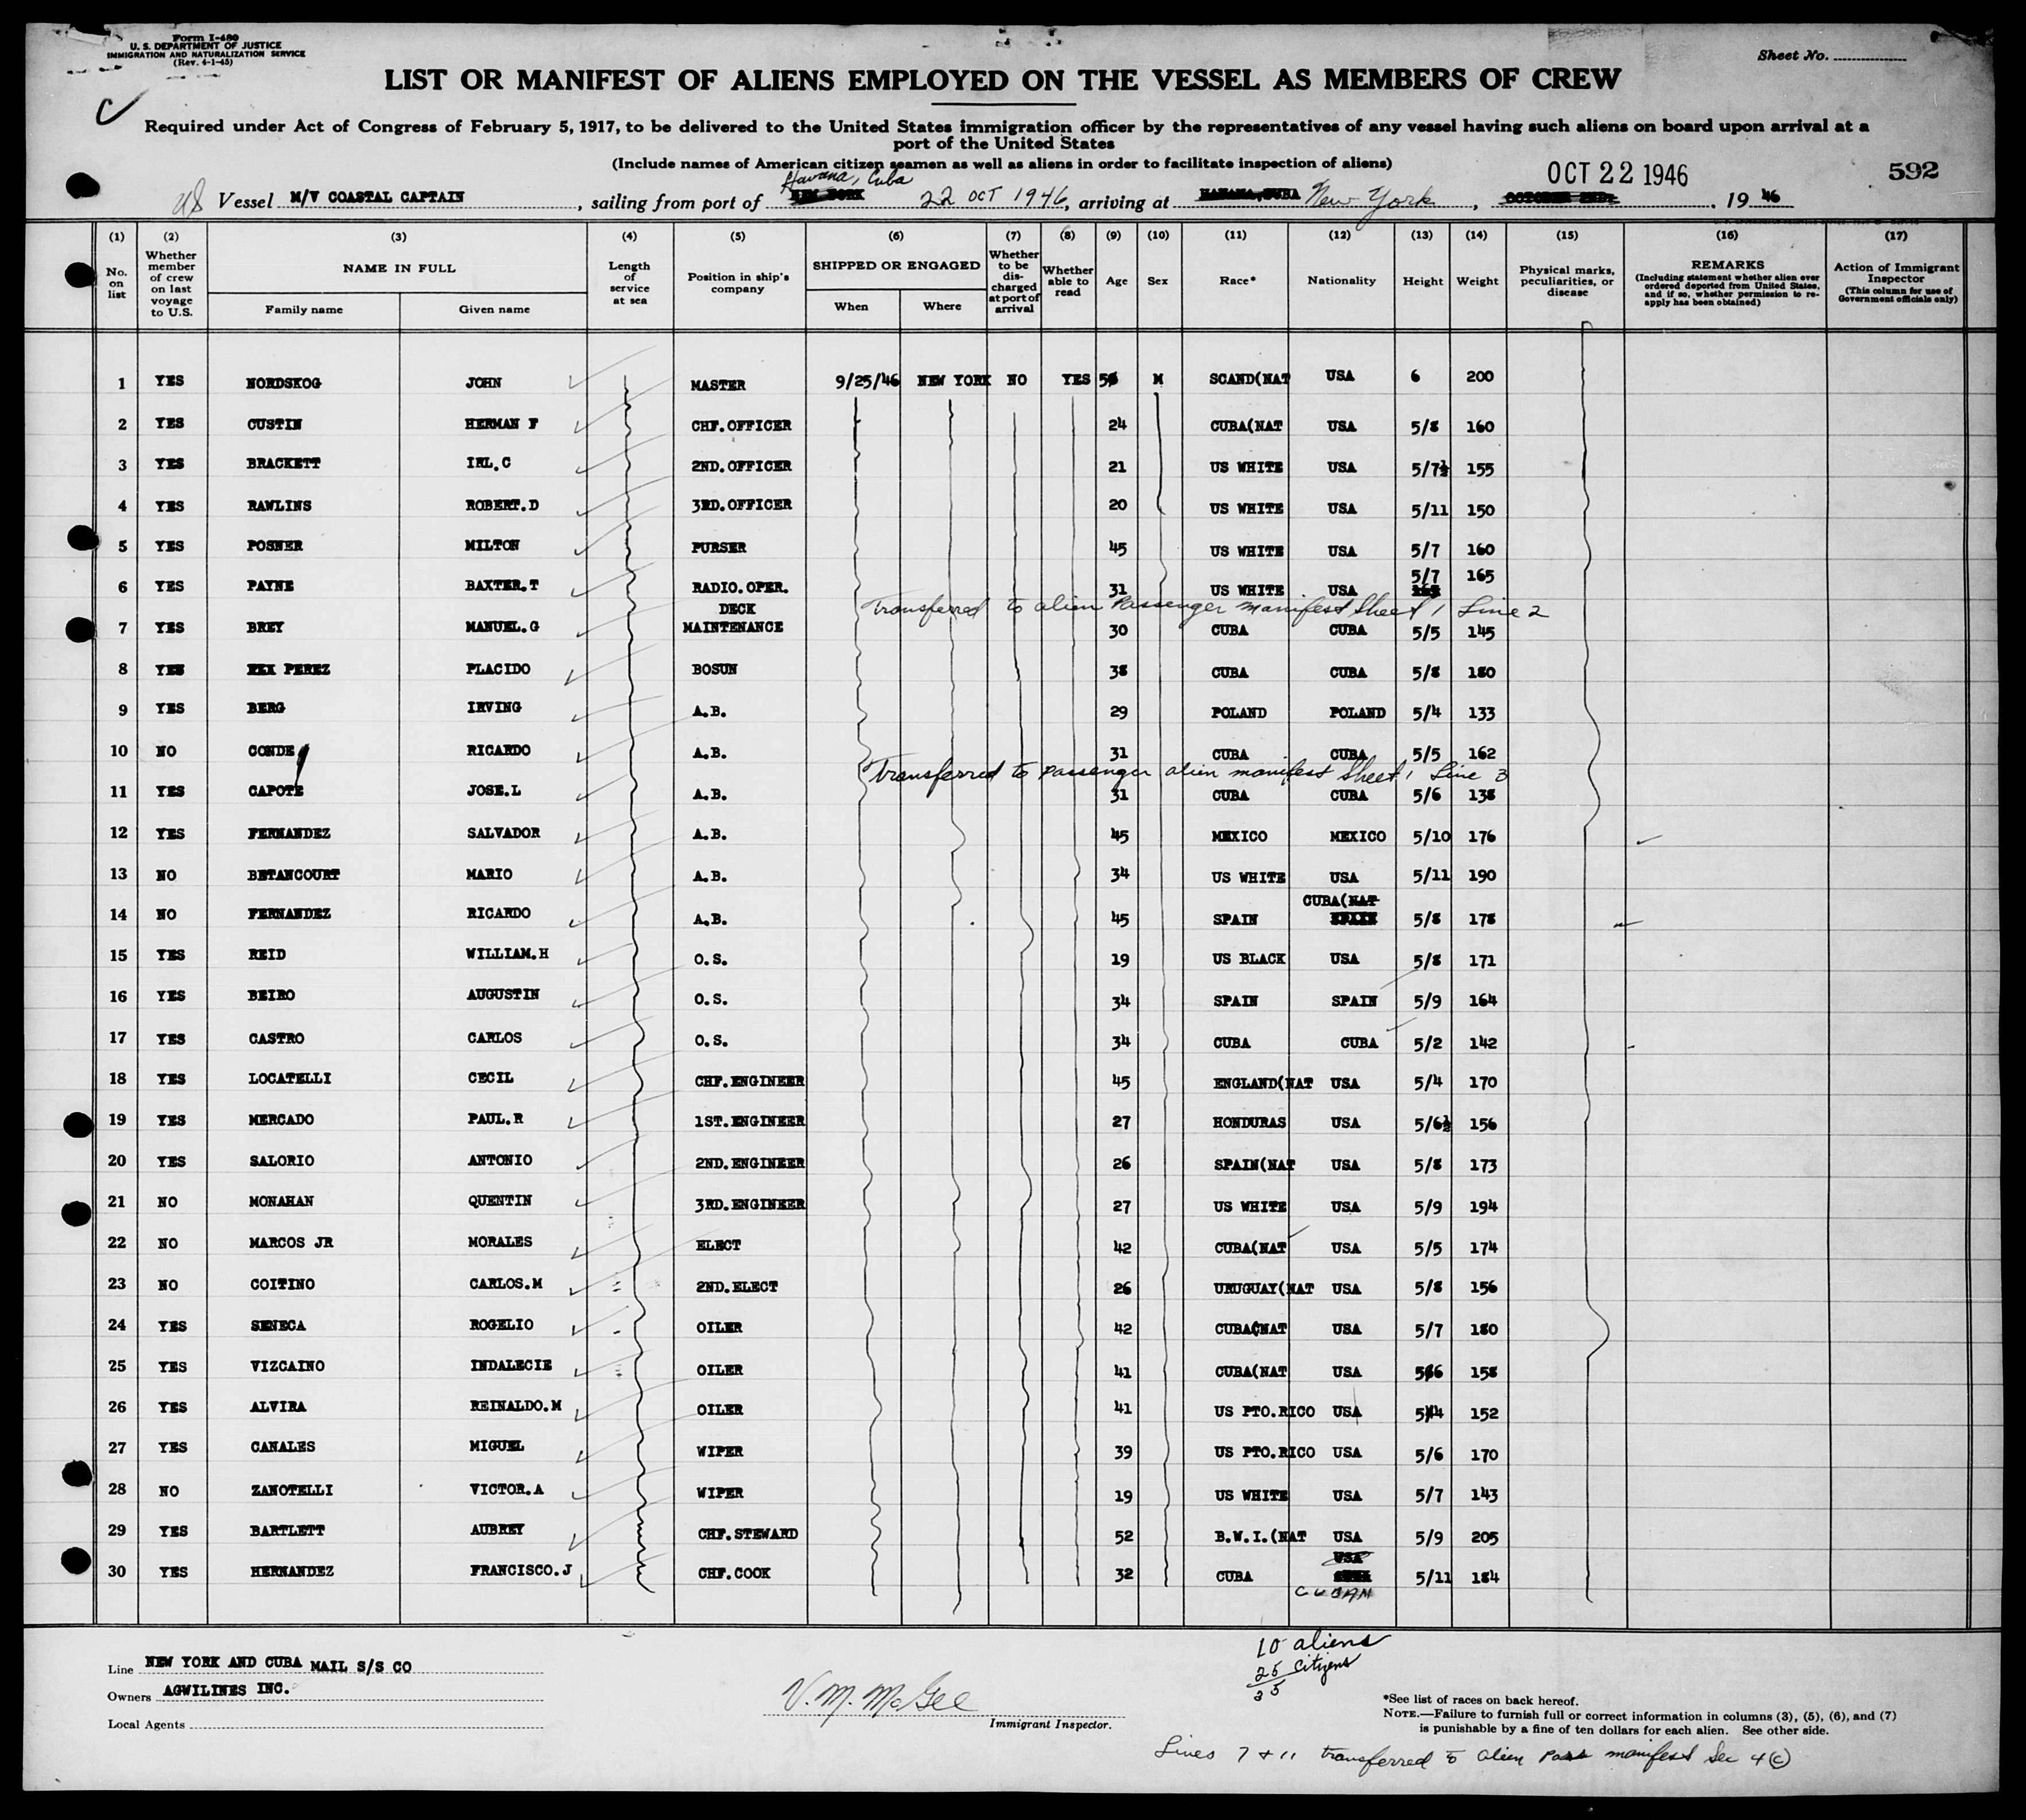 Form I-480
U. S. DEPARTMENT OF JUSTICE
IMMIGRATION AND NATURALIZATION SERVICE
(Rev. 4-1-45)
Sheet No.
LIST OR MANIFEST OF ALIENS EMPLOYED ON THE VESSEL AS MEMBERS OF CREW
Required under Act of Congress of February 5, 1917, to be delivered to the United States immigration officer by the representatives of any vessel having such aliens on board upon arrival at a
port of the United States
(Include names of American citizen seamen as well as aliens in order to facilitate inspection of aliens)
OCT 22 1946 592
Havana, Cuba
US Vessel M/V COASTAL CAPTAIN, sailing from port of NEW YORK 22 OCT 1946, arriving at HAVANA, CUBA New York, OCTOBER 22ND. 1946
(1) (2) (3) (4) (5) (6) (7) (8) (9) (10) (11) (12) (13) (14) (15) (16) (17)
No. on list Whether member of crew on last voyage to U.S. NAME IN FULL Family name Given name Length of service at sea Position in ship's company SHIPPED OR ENGAGED When Where Whether to be discharged at port of arrival Whether able to read Age Sex Race* Nationality Height Weight Physical marks, peculiarities, or disease REMARKS (Including statement whether alien ever ordered deported from United States, and if so, whether permission to reapply has been obtained) Action of Immigrant Inspector (This column for use of Government officials only)
1 YES NORDSKOG JOHN MASTER 9/25/46 NEW YORK NO YES M SCAND(NAT USA 6 200
2 YES CUSTIN HERMAN F CHF.OFFICER 24 CUBA(NAT USA 5/8 160
3 YES BRACKETT IRL.C 2ND.OFFICER 21 US WHITE USA 5/7½ 155
4 YES RAWLINS ROBERT.D 3RD.OFFICER 20 US WHITE USA 5/11 150
5 YES POSNER MILTON PURSER 45 US WHITE USA 5/7 160
6 YES PAYNE BAXTER.T RADIO.OPER. 31 US WHITE USA 5/7 165
Transferred to alien Passenger manifest Sheet 1 Line 2
7 YES BREY MANUEL.G DECK MAINTENANCE 30 CUBA CUBA 5/5 145
8 YES PEREZ PLACIDO BOSUN 38 CUBA CUBA 5/8 180
9 YES BERG IRVING A.B. 29 POLAND POLAND 5/4 133
10 NO CONDE RICARDO A.B. 31 CUBA CUBA 5/5 162
Transferred to passenger alien manifest Sheet 1 Line 3
11 YES CAPOTE JOSE.L A.B. 31 CUBA CUBA 5/6 138
12 YES FERNANDEZ SALVADOR A.B. 45 MEXICO MEXICO 5/10 176
13 NO BETANCOURT MARIO A.B. 34 US WHITE USA 5/11 190
14 NO FERNANDEZ RICARDO A.B. 45 SPAIN CUBA(NAT SPAIN 5/8 178
15 YES REID WILLIAM.H O.S. 19 US BLACK USA 5/8 171
16 YES BEIRO AUGUSTIN O.S. 34 SPAIN SPAIN 5/9 164
17 YES CASTRO CARLOS O.S. 34 CUBA CUBA 5/2 142
18 YES LOCATELLI CECIL CHF.ENGINEER 45 ENGLAND(NAT USA 5/4 170
19 YES MERCADO PAUL.R 1ST.ENGINEER 27 HONDURAS USA 5/6½ 156
20 YES SALORIO ANTONIO 2ND.ENGINEER 26 SPAIN(NAT USA 5/8 173
21 NO MONAHAN QUENTIN 3RD.ENGINEER 27 US WHITE USA 5/9 194
22 NO MARCOS JR MORALES ELECT 42 CUBA(NAT USA 5/5 174
23 NO COITINO CARLOS.M 2ND.ELECT 26 URUGUAY(NAT USA 5/8 156
24 YES SENECA ROGELIO OILER 42 CUBA(NAT USA 5/7 180
25 YES VIZCAINO INDALECIE OILER 41 CUBA(NAT USA 5/6 158
26 YES ALVIRA REINALDO.M OILER 41 US PTO.RICO USA 5/4 152
27 YES CANALES MIGUEL WIPER 39 US PTO.RICO USA 5/6 170
28 NO ZANOTELLI VICTOR.A WIPER 19 US WHITE USA 5/7 143
29 YES BARTLETT AUBREY CHF.STEWARD 52 B.W.I.(NAT USA 5/9 205
30 YES HERNANDEZ FRANCISCO.J CHF.COOK 32 CUBA USA CUBAN 5/11 184
Line NEW YORK AND CUBA MAIL S/S CO
Owners AGWILINES INC.
Local Agents
V. M. McGee
Immigrant Inspector.
10 aliens
25 Citizens
35
*See list of races on back hereof.
NOTE.—Failure to furnish full or correct information in columns (3), (5), (6), and (7)
is punishable by a fine of ten dollars for each alien. See other side.
Lines 7 + 11 transferred to alien Pass manifest Sec 4(c)